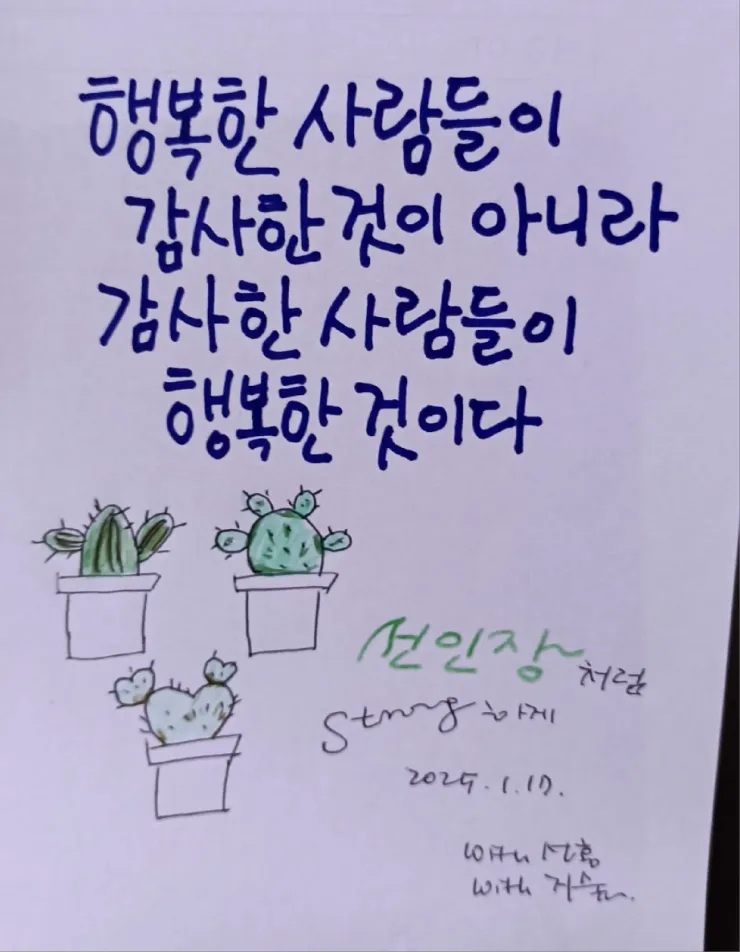 행복한 사람들이
감사한 것이 아니라
감사한 사람들이
행복한 것이다
선인장처럼
Strong 하게
2025.1.17.
with
with